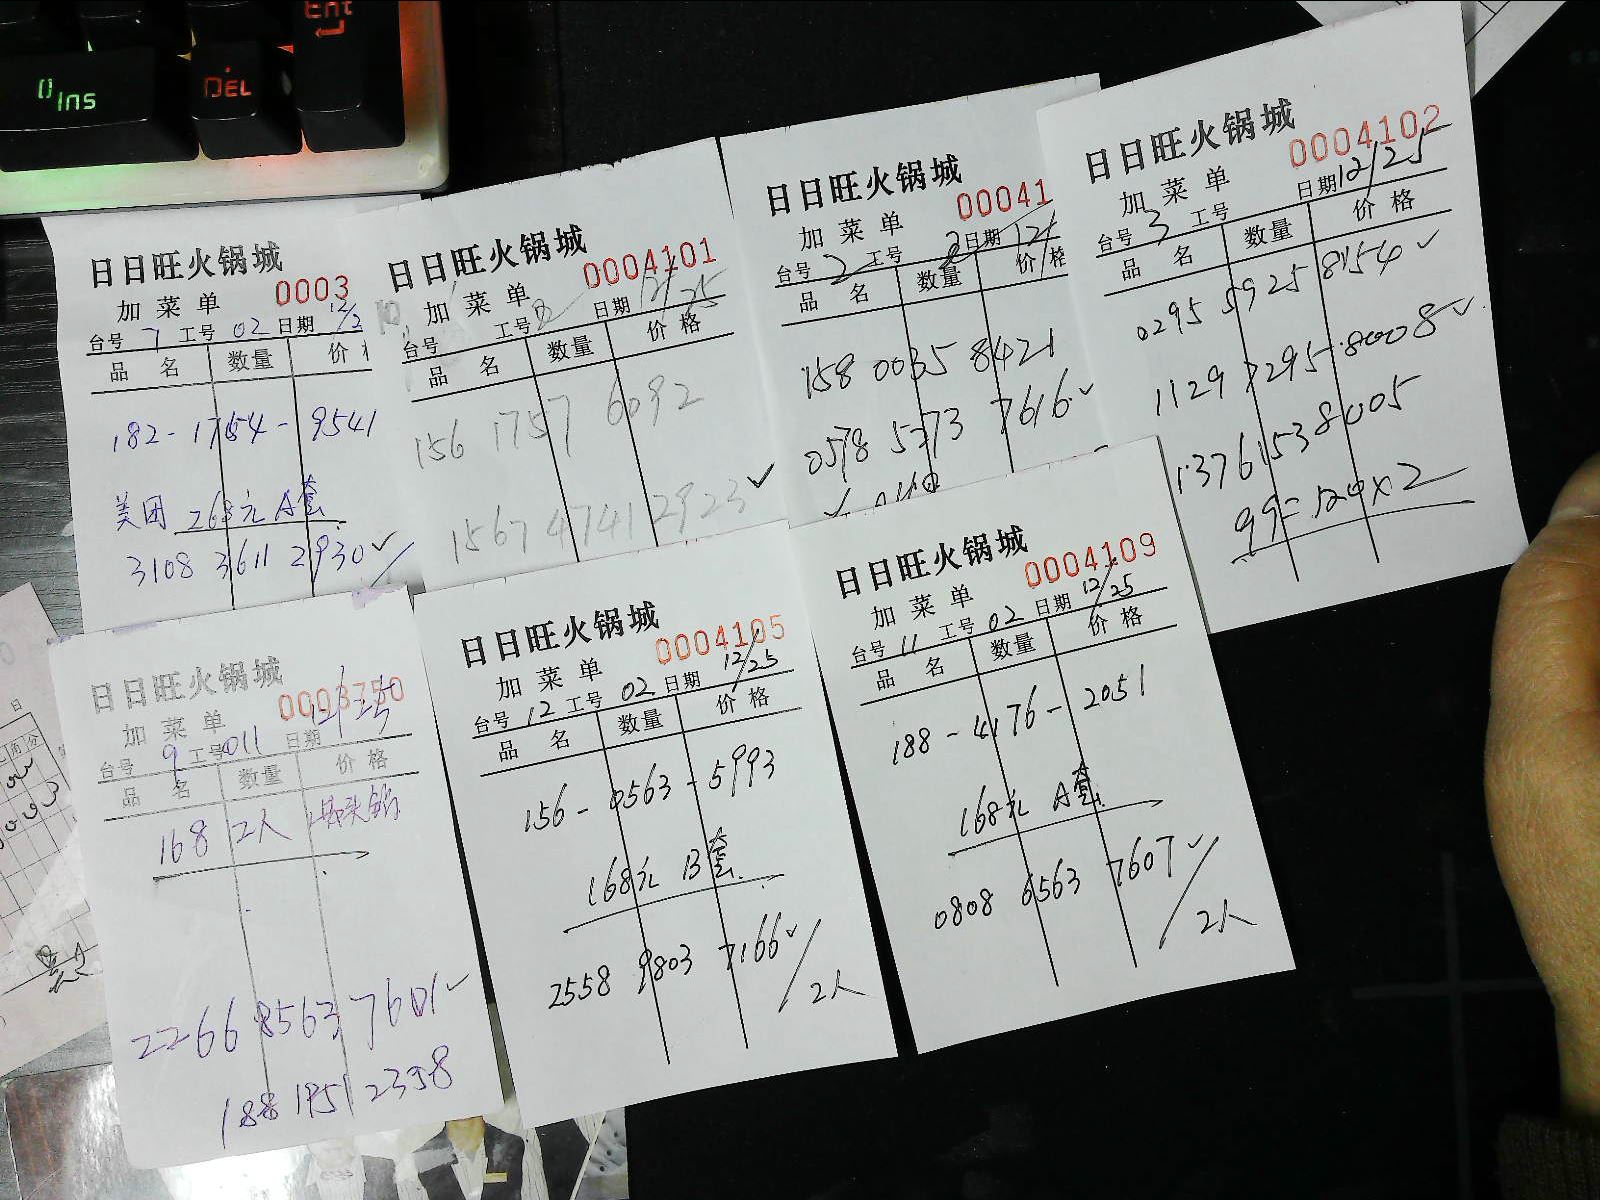 Ins
DEL
Ent
日日旺火锅城
0003
加菜单
台号 7 工号 02 日期 12/2
品名 数量 价
182-1754-9541
美团 268元 A套
3108 3611 2930
日日旺火锅城
0004101
加菜单
台号 工号 日期 12/25
品名 数量 价格
156 1757 6092
1567 4741 2923
日日旺火锅城
00041
加菜单
台号 2 工号 2 日期 12/
品名 数量 价格
158 0035 8421
0578 5273 7616
日日旺火锅城
0004102
加菜单
台号 3 工号 日期 12/25
品名 数量 价格
0295 5925 8154
1129 7295 8008
13761538005
99= ×2
日日旺火锅城
0003750
加菜单
台号 9 工号 011 日期 12/25
品名 数量 价格
168 2人
2266 8563 7601
188 1951 2358
日日旺火锅城
0004105
加菜单
台号 12 工号 02 日期 12/25
品名 数量 价格
156-0563-5993
168元 B套
2558 9803 7166
2人
日日旺火锅城
0004109
加菜单
台号 11 工号 02 日期 12/25
品名 数量 价格
188-4176-2051
168元 A套
0808 6563 7607
2人